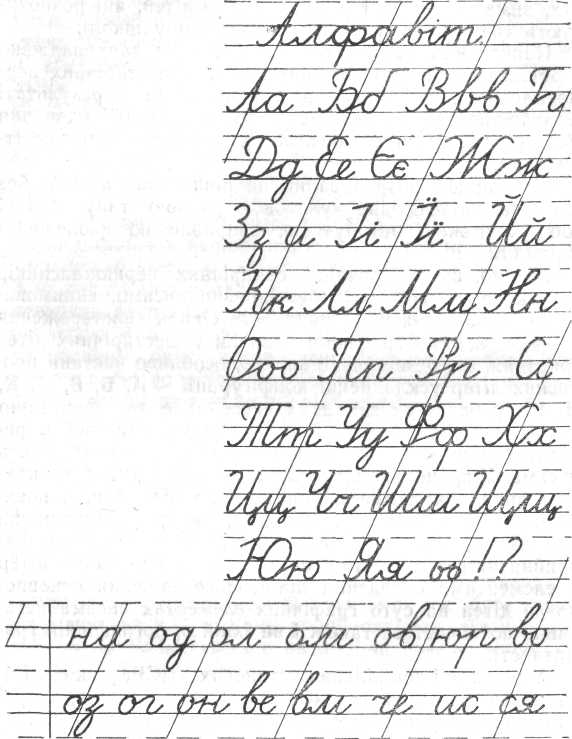 Алфавіт
Аа Бб Ввв Гг
Дд Ее Єє Жж
Зз и Іі Її Йй
Кк Лл Мм Нн
Ооо Пп Рр Сс
Тт Уу Фф Хх
Цц Чч Шш Щщ
Юю Яя ь !?
на од ол ом ов юр во
оз ог он ве вм че ис ся